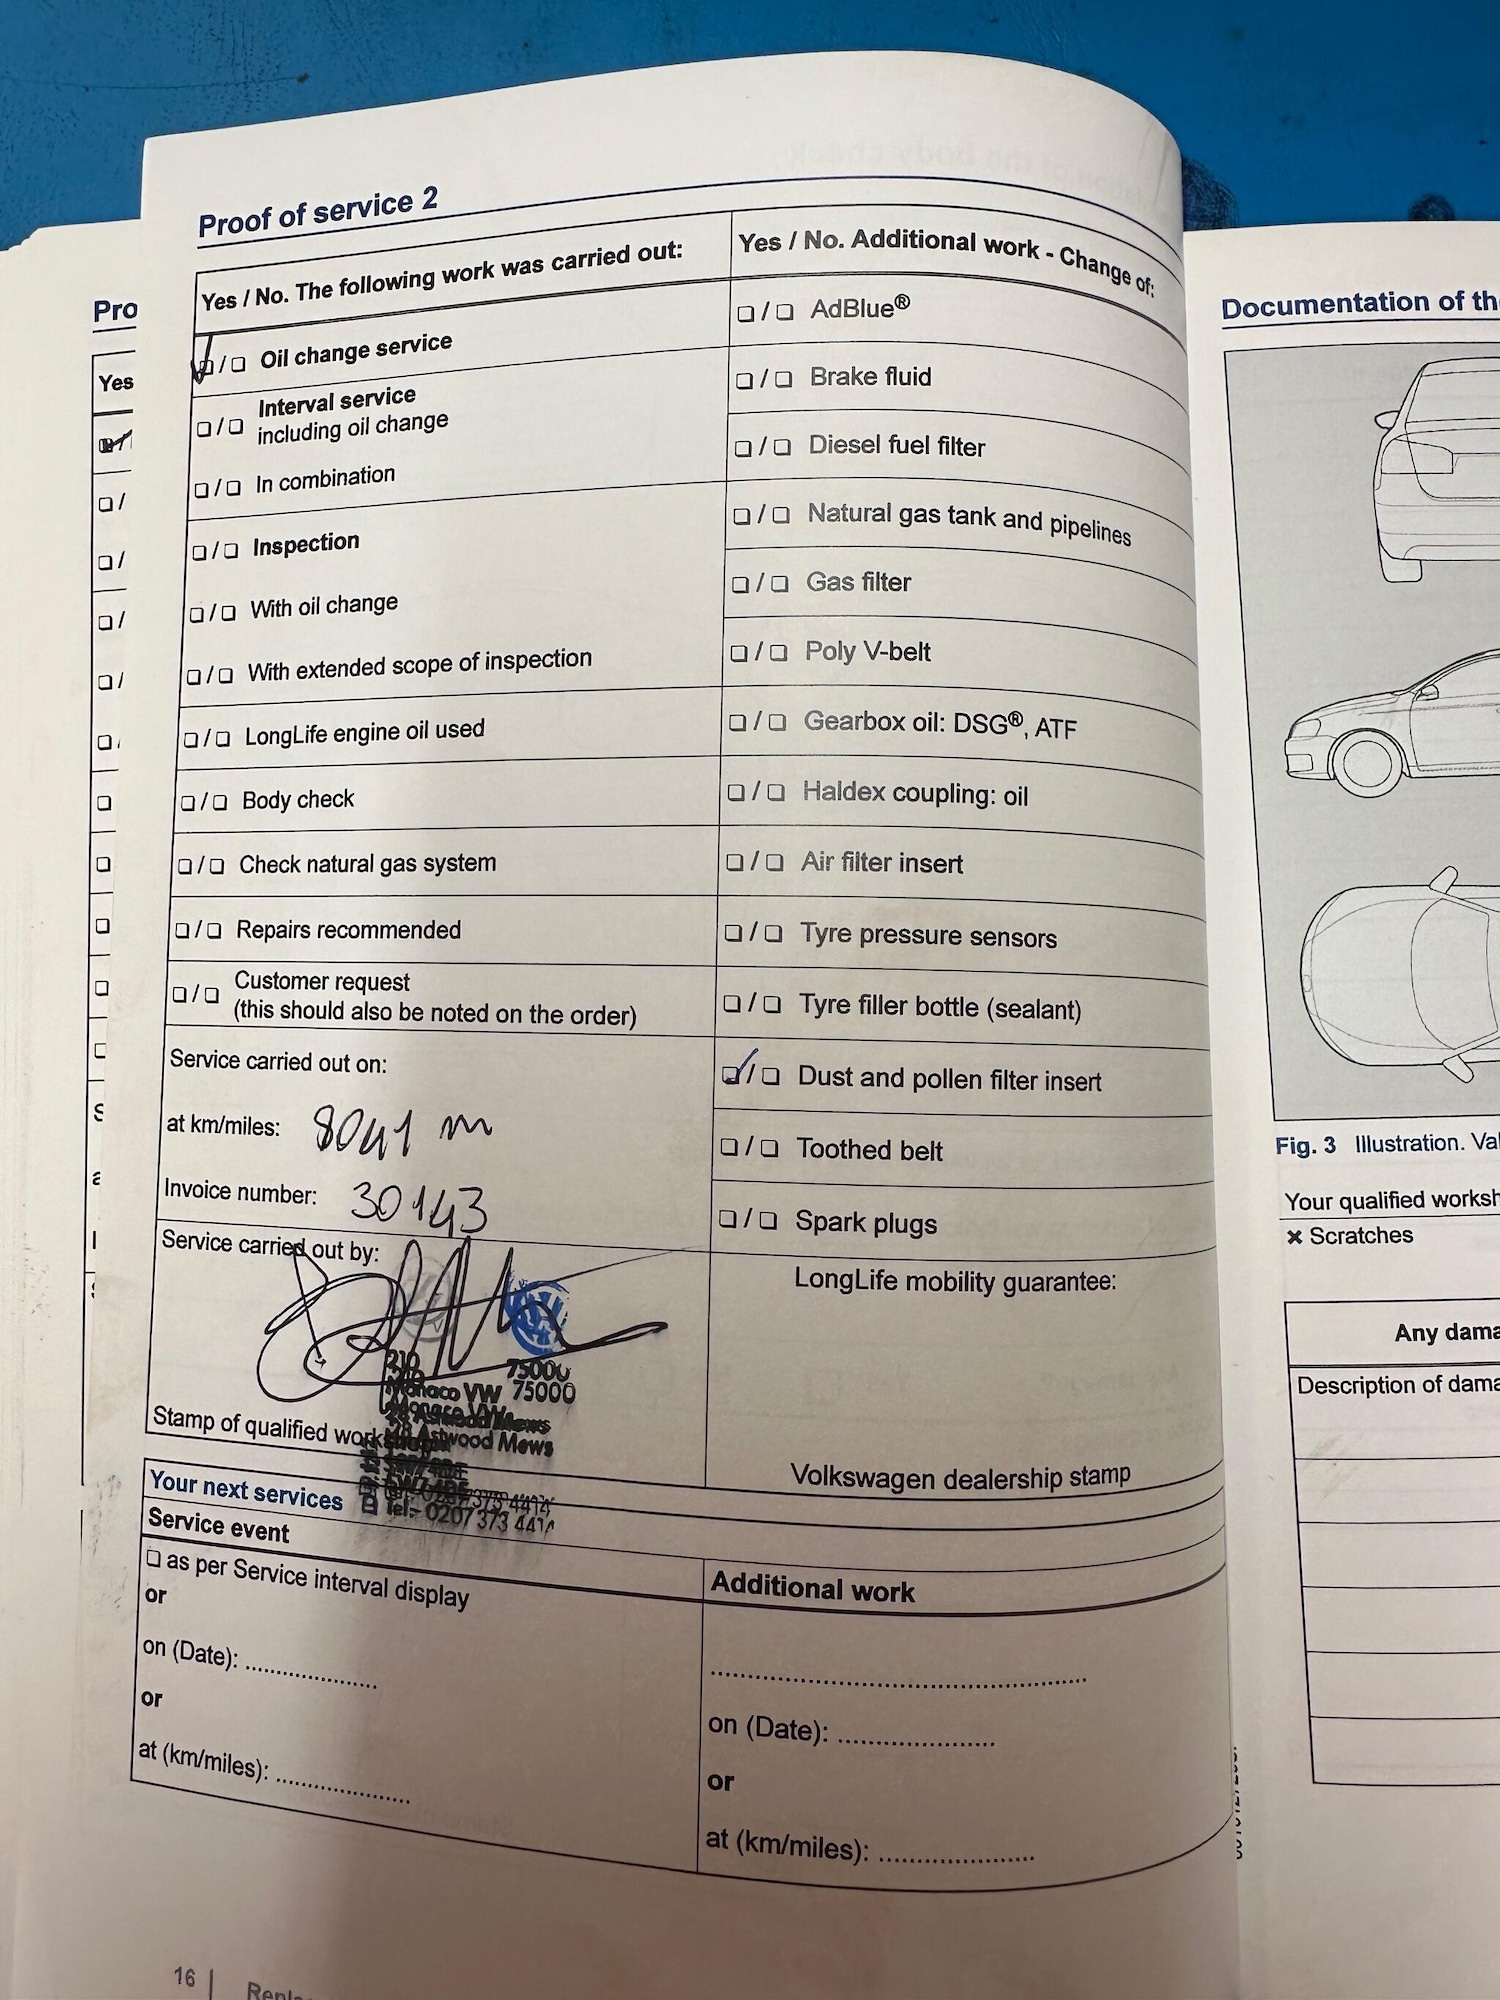 Proof of service 2
Yes / No. The following work was carried out:
❑ / ❑ Oil change service
❑ / ❑ Interval service
including oil change
❑ / ❑ In combination
❑ / ❑ Inspection
❑ / ❑ With oil change
❑ / ❑ With extended scope of inspection
❑ / ❑ LongLife engine oil used
❑ / ❑ Body check
❑ / ❑ Check natural gas system
❑ / ❑ Repairs recommended
❑ / ❑ Customer request
(this should also be noted on the order)
Service carried out on:
at km/miles: 8041 m
Invoice number: 30143
Service carried out by:
210 75000
Monaco VW 75000
Monaco VW
28 Astwood Mews
28 Astwood Mews
Tel:- 0207 373 441
Stamp of qualified workshop
Yes / No. Additional work - Change of:
❑ / ❑ AdBlue®
❑ / ❑ Brake fluid
❑ / ❑ Diesel fuel filter
❑ / ❑ Natural gas tank and pipelines
❑ / ❑ Gas filter
❑ / ❑ Poly V-belt
❑ / ❑ Gearbox oil: DSG®, ATF
❑ / ❑ Haldex coupling: oil
❑ / ❑ Air filter insert
❑ / ❑ Tyre pressure sensors
❑ / ❑ Tyre filler bottle (sealant)
❑ / ❑ Dust and pollen filter insert
❑ / ❑ Toothed belt
❑ / ❑ Spark plugs
LongLife mobility guarantee:
Volkswagen dealership stamp
Your next services
Service event
❑ as per Service interval display
or
on (Date): ....................
or
at (km/miles): ....................
Additional work
..........................................................
on (Date): ........................
or
at (km/miles): ........................
16
Pro
Yes
Documentation of the
Fig. 3 Illustration. Va
Your qualified worksh
✖ Scratches
Any dama
Description of dama